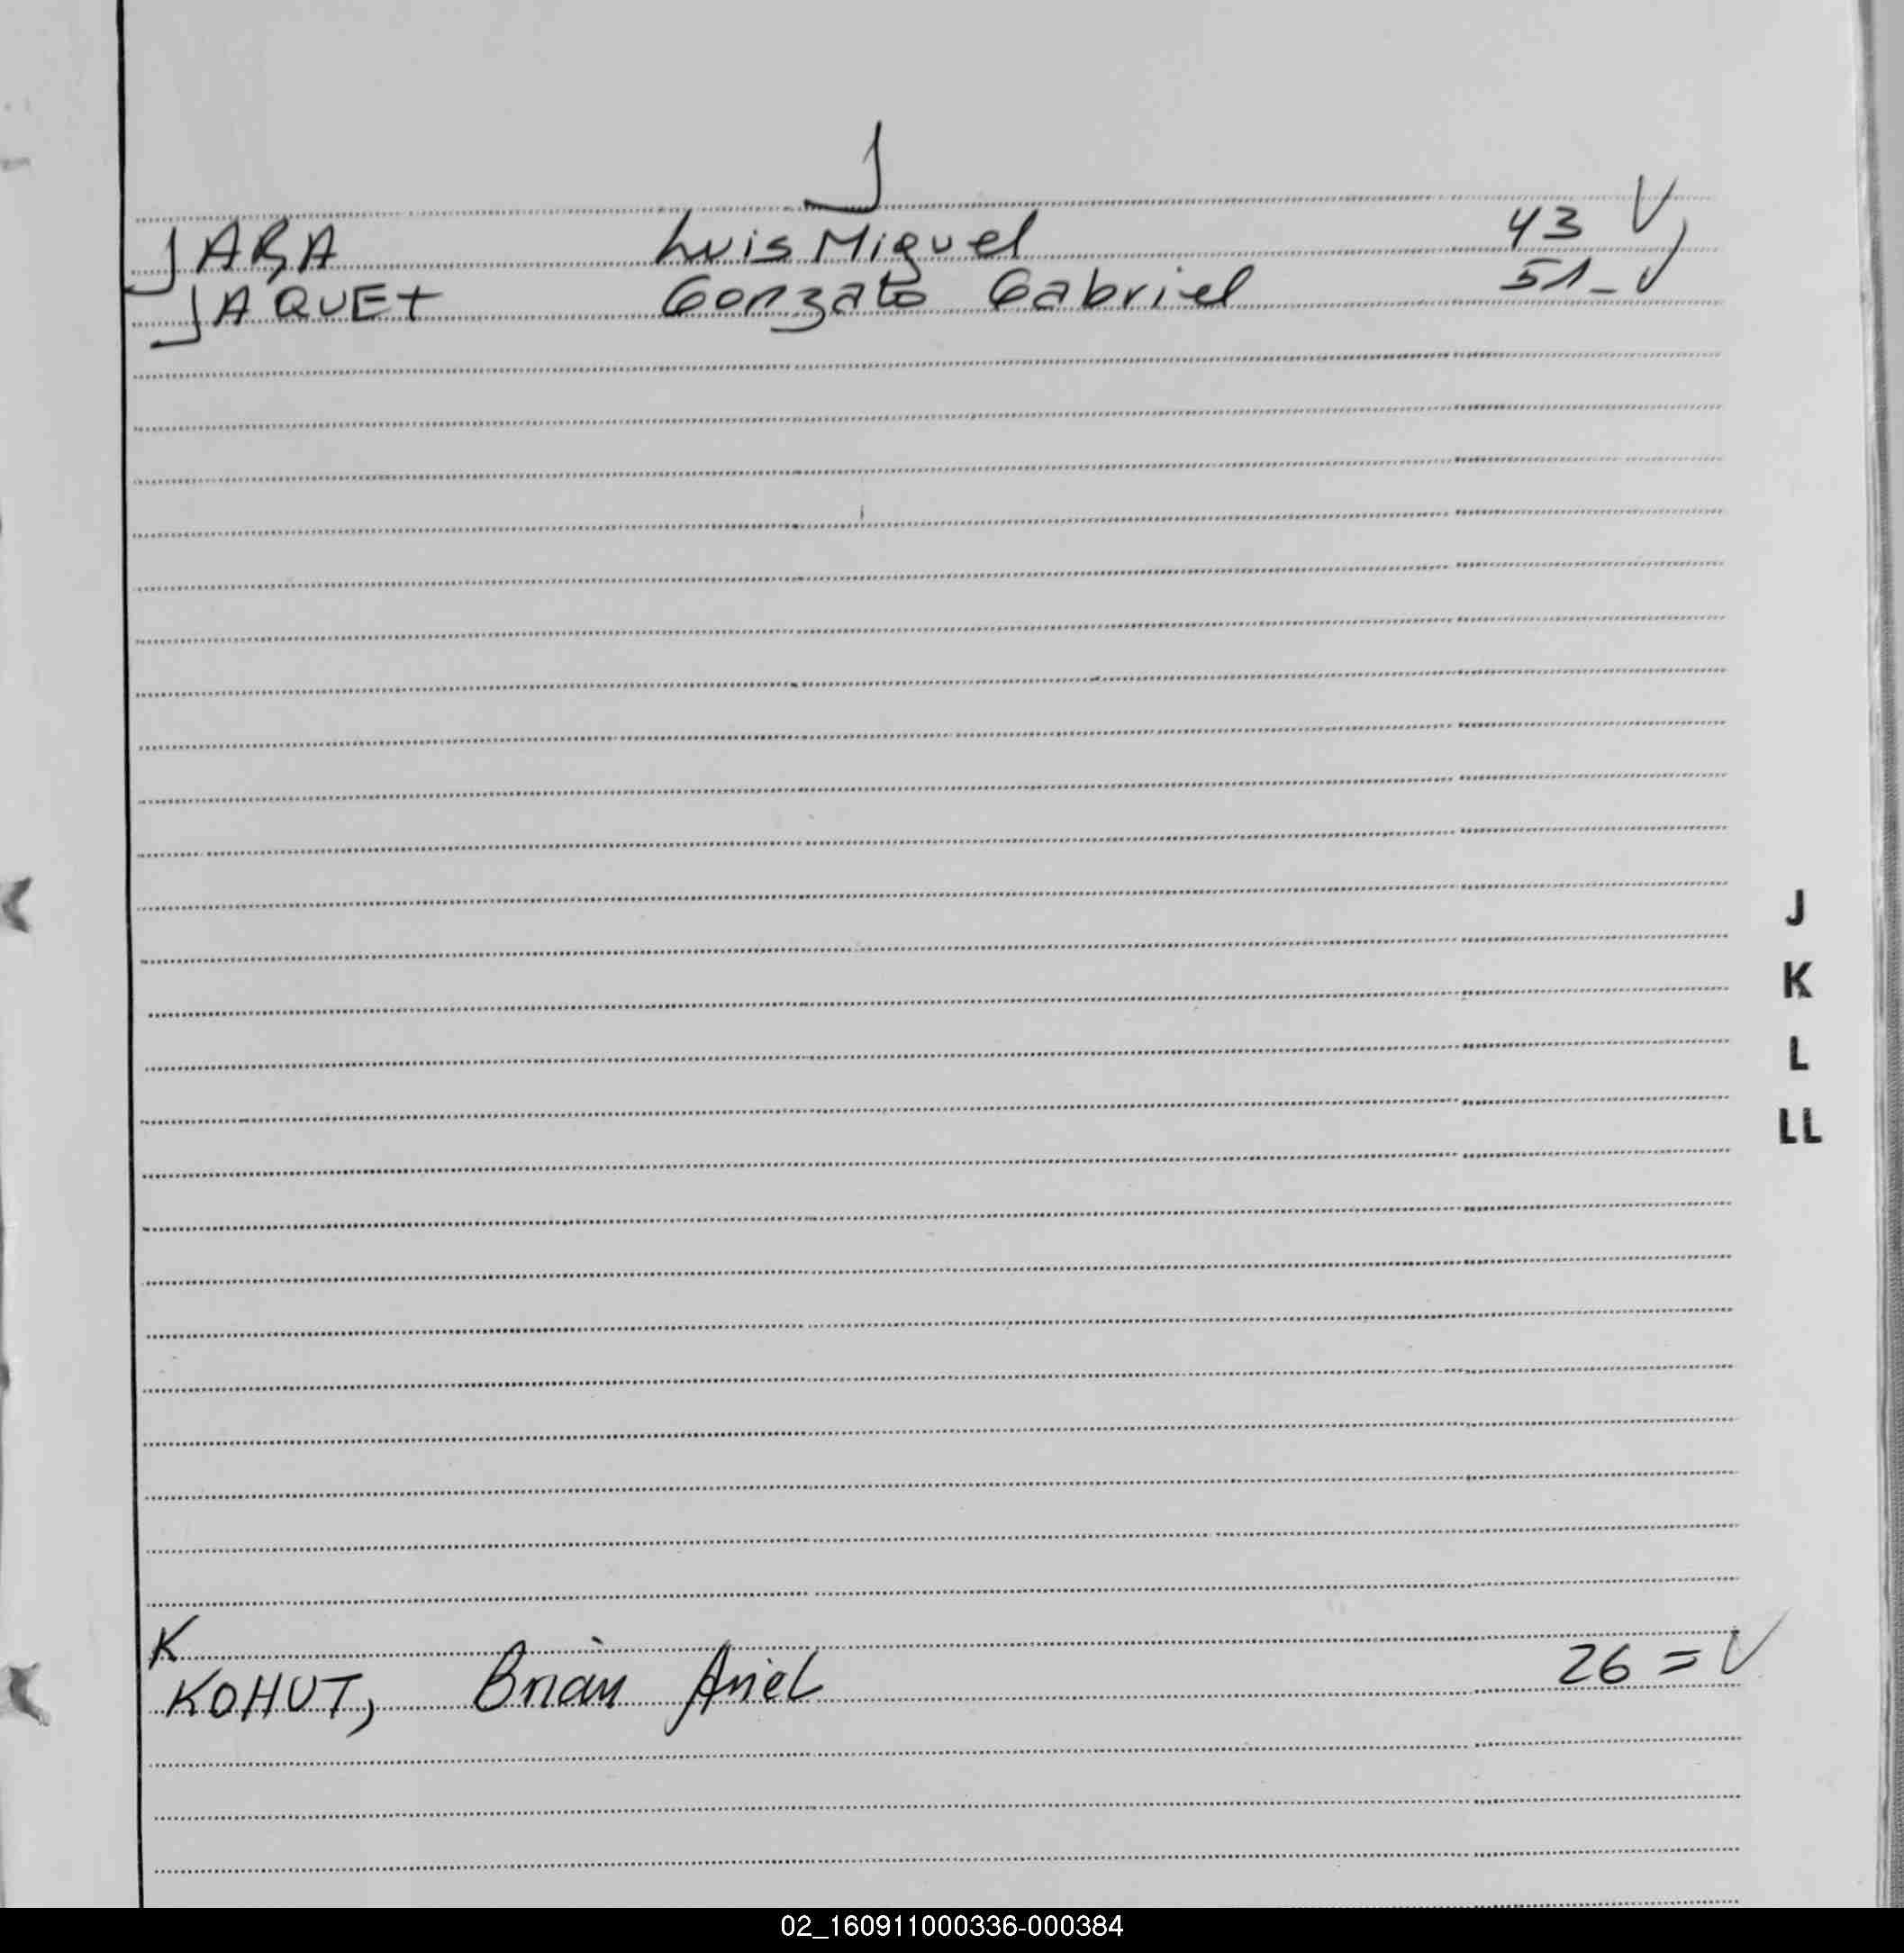 J
JARA Luis Miguel 43 V
JAQUET Gonzalo Gabriel 51_V
J
K
L
LL
K
KOHUT, Brian Ariel 26 = V
02_160911000336-000384